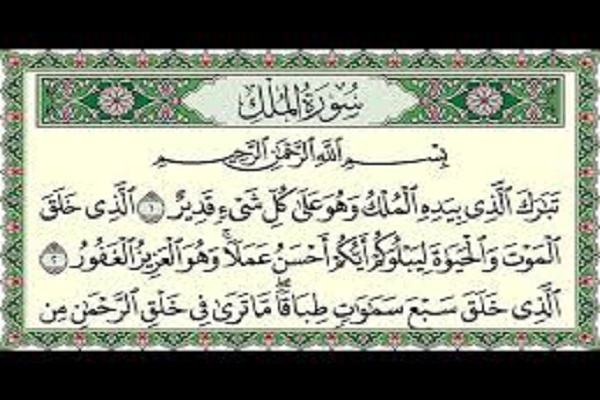 سُورَةُ المُلْكِ
بِسْمِ اللَّهِ الرَّحْمَٰنِ الرَّحِيمِ
تَبَٰرَكَ الَّذِى بِيَدِهِ الْمُلْكُ وَهُوَ عَلَىٰ كُلِّ شَىْءٍ قَدِيرٌ ١ الَّذِى خَلَقَ
الْمَوْتَ وَالْحَيَوٰةَ لِيَبْلُوَكُمْ أَيُّكُمْ أَحْسَنُ عَمَلًا ۚ وَهُوَ الْعَزِيزُ الْغَفُورُ ٢
الَّذِى خَلَقَ سَبْعَ سَمَٰوَٰتٍ طِبَاقًا ۖ مَّا تَرَىٰ فِى خَلْقِ الرَّحْمَٰنِ مِن